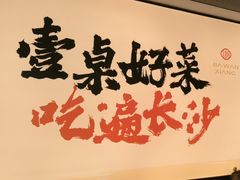 壹桌好菜
吃遍长沙
BA WAN
XIANG